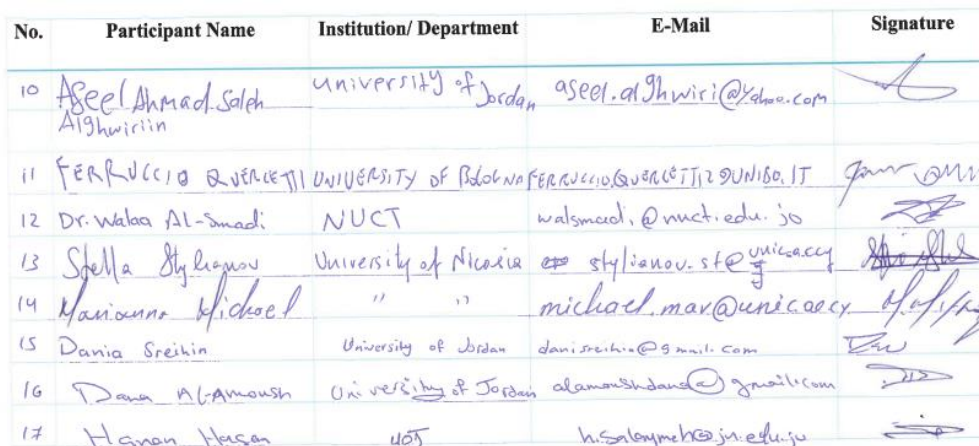 No. Participant Name Institution/ Department E-Mail Signature
10 Aseel Ahmad Saleh University of Jordan aseel.alghwiri@yahoo.com
Alghwiriin
11 FERRUCCIO QUERCETTI UNIVERSITY OF BOLOGNA FERRUCCIO.QUERCETTI2@UNIBO.IT
12 Dr. Walaa Al-Smadi NUCT walsmadi.@nuct.edu.jo
13 Stella Stylianou University of Nicosia stylianou.st@unic.ac.cy
14 Marianna Michael " " michael.mar@unic.ac.cy
15 Dania Sreihin University of Jordan danisreihin@gmail.com
16 Dana Al-Amoush University of Jordan alamoushdana@gmail.com
17 Hanan Hasan UOJ h.salaymeh@ju.edu.jo